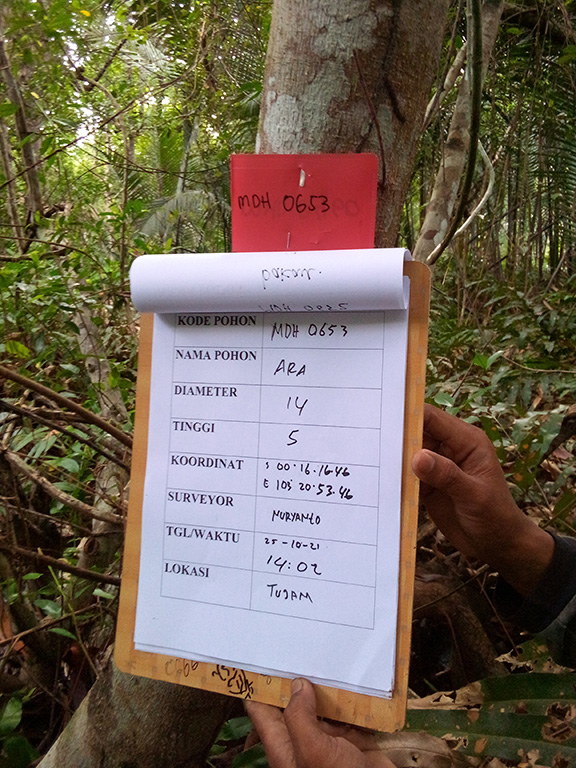 MDH 0653
pakau.
KODE POHON MDH 0653
NAMA POHON ARA
DIAMETER 14
TINGGI 5
KOORDINAT S 00.16.16.46
E 103.20.53.46
SURVEYOR NURYANTO
TGL/WAKTU 25-10-21
14:02
LOKASI TUJAM